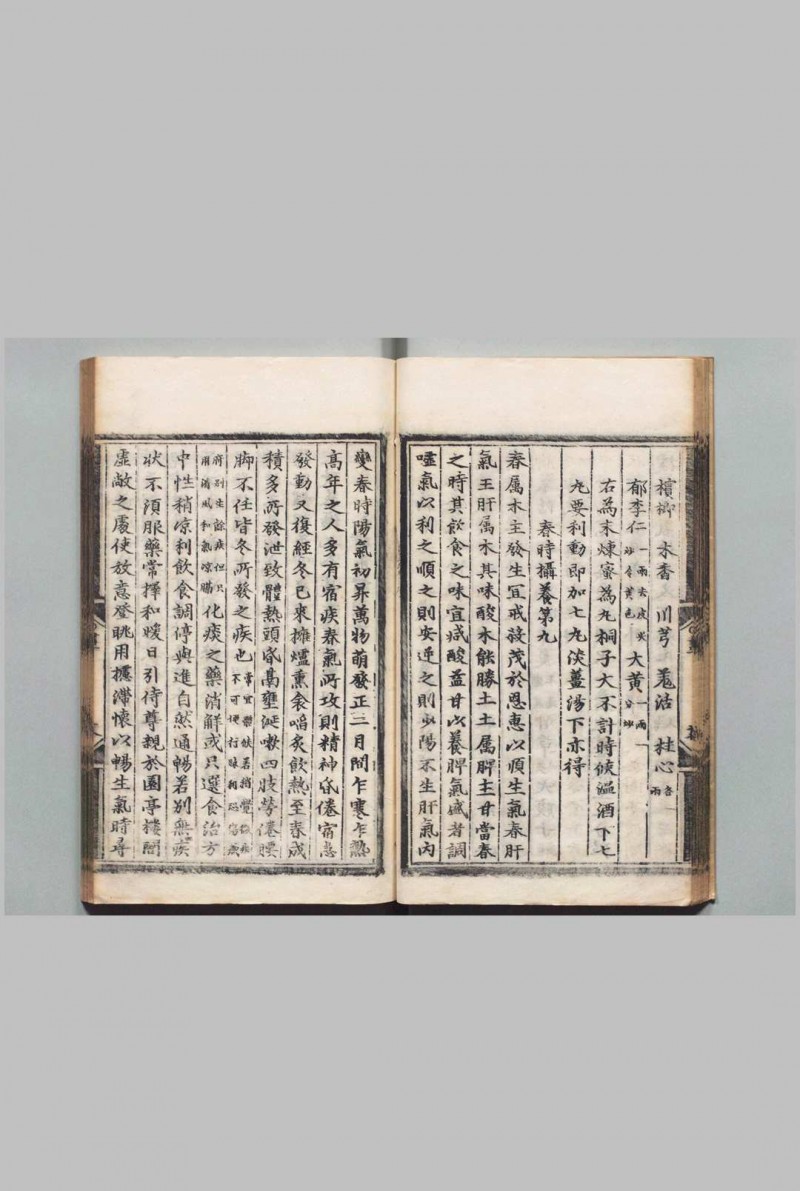 檳榔 木香 川芎 羗活 桂心各一兩
郁李仁一兩去皮尖炒令黃色 大黃一兩
右為末煉蜜為丸桐子大不計時候溫酒下七
丸要利動即加七丸淡薑湯下亦得
春時攝養第九
春屬木主發生宜戒殺茂於恩惠以順生氣春肝
氣王肝屬木其味酸木能勝土土屬脾主甘當春
之時其飲食之味宜減酸益甘以養脾氣盛者調
噓氣以利之順之則安逆之則少陽不生肝氣內
變春時陽氣初昇萬物萌發正二月間乍寒乍熱
高年之人多有宿疾春氣所攻則精神昏倦宿患
發動又復經冬已來擁爐熏食啗炙飲熱至春成
積多所發泄致體熱頭昏鬲壅涎嗽四肢勞倦腰
脚不任皆冬所發之疾也常宜
不可便行
府別生餘疾但只用消風和氣凉膈化痰之藥消解或只選食治方
中性稍凉利飲食調停與進自然通暢若別無疾
狀不須服藥常擇和暖日引侍尊親於園亭樓閣
虛敞之處使放意登眺用攄滯懷以暢生氣時尋